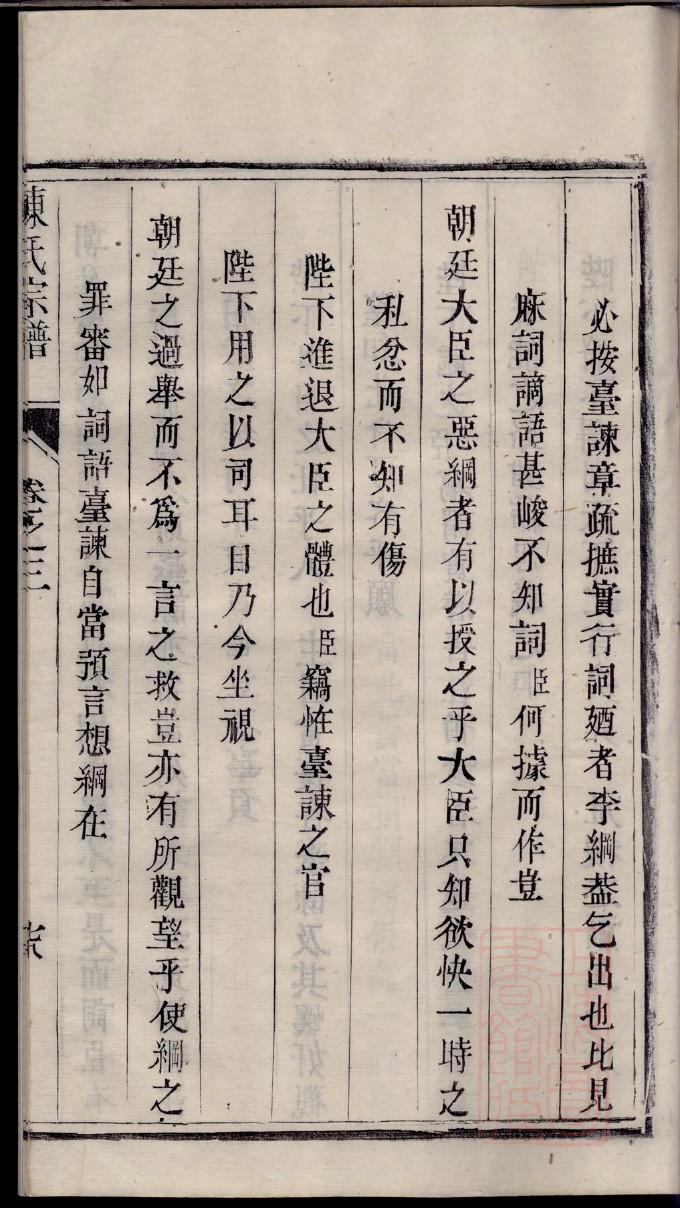 必按臺諫章疏摭實行詞廼者李綱葢乞出也比見
麻詞謫語甚峻不知詞臣何據而作豈
朝廷大臣之惡綱者有以授之乎大臣只知欲快一時之
私忿而不知有傷
陛下進退大臣之體也臣竊恠臺諫之官
陛下用之以司耳目乃今坐視
朝廷之過舉而不爲一言之救豈亦有所觀望乎使綱之
罪審如詞語臺諫自當預言想綱在
陳氏宗譜
卷之三